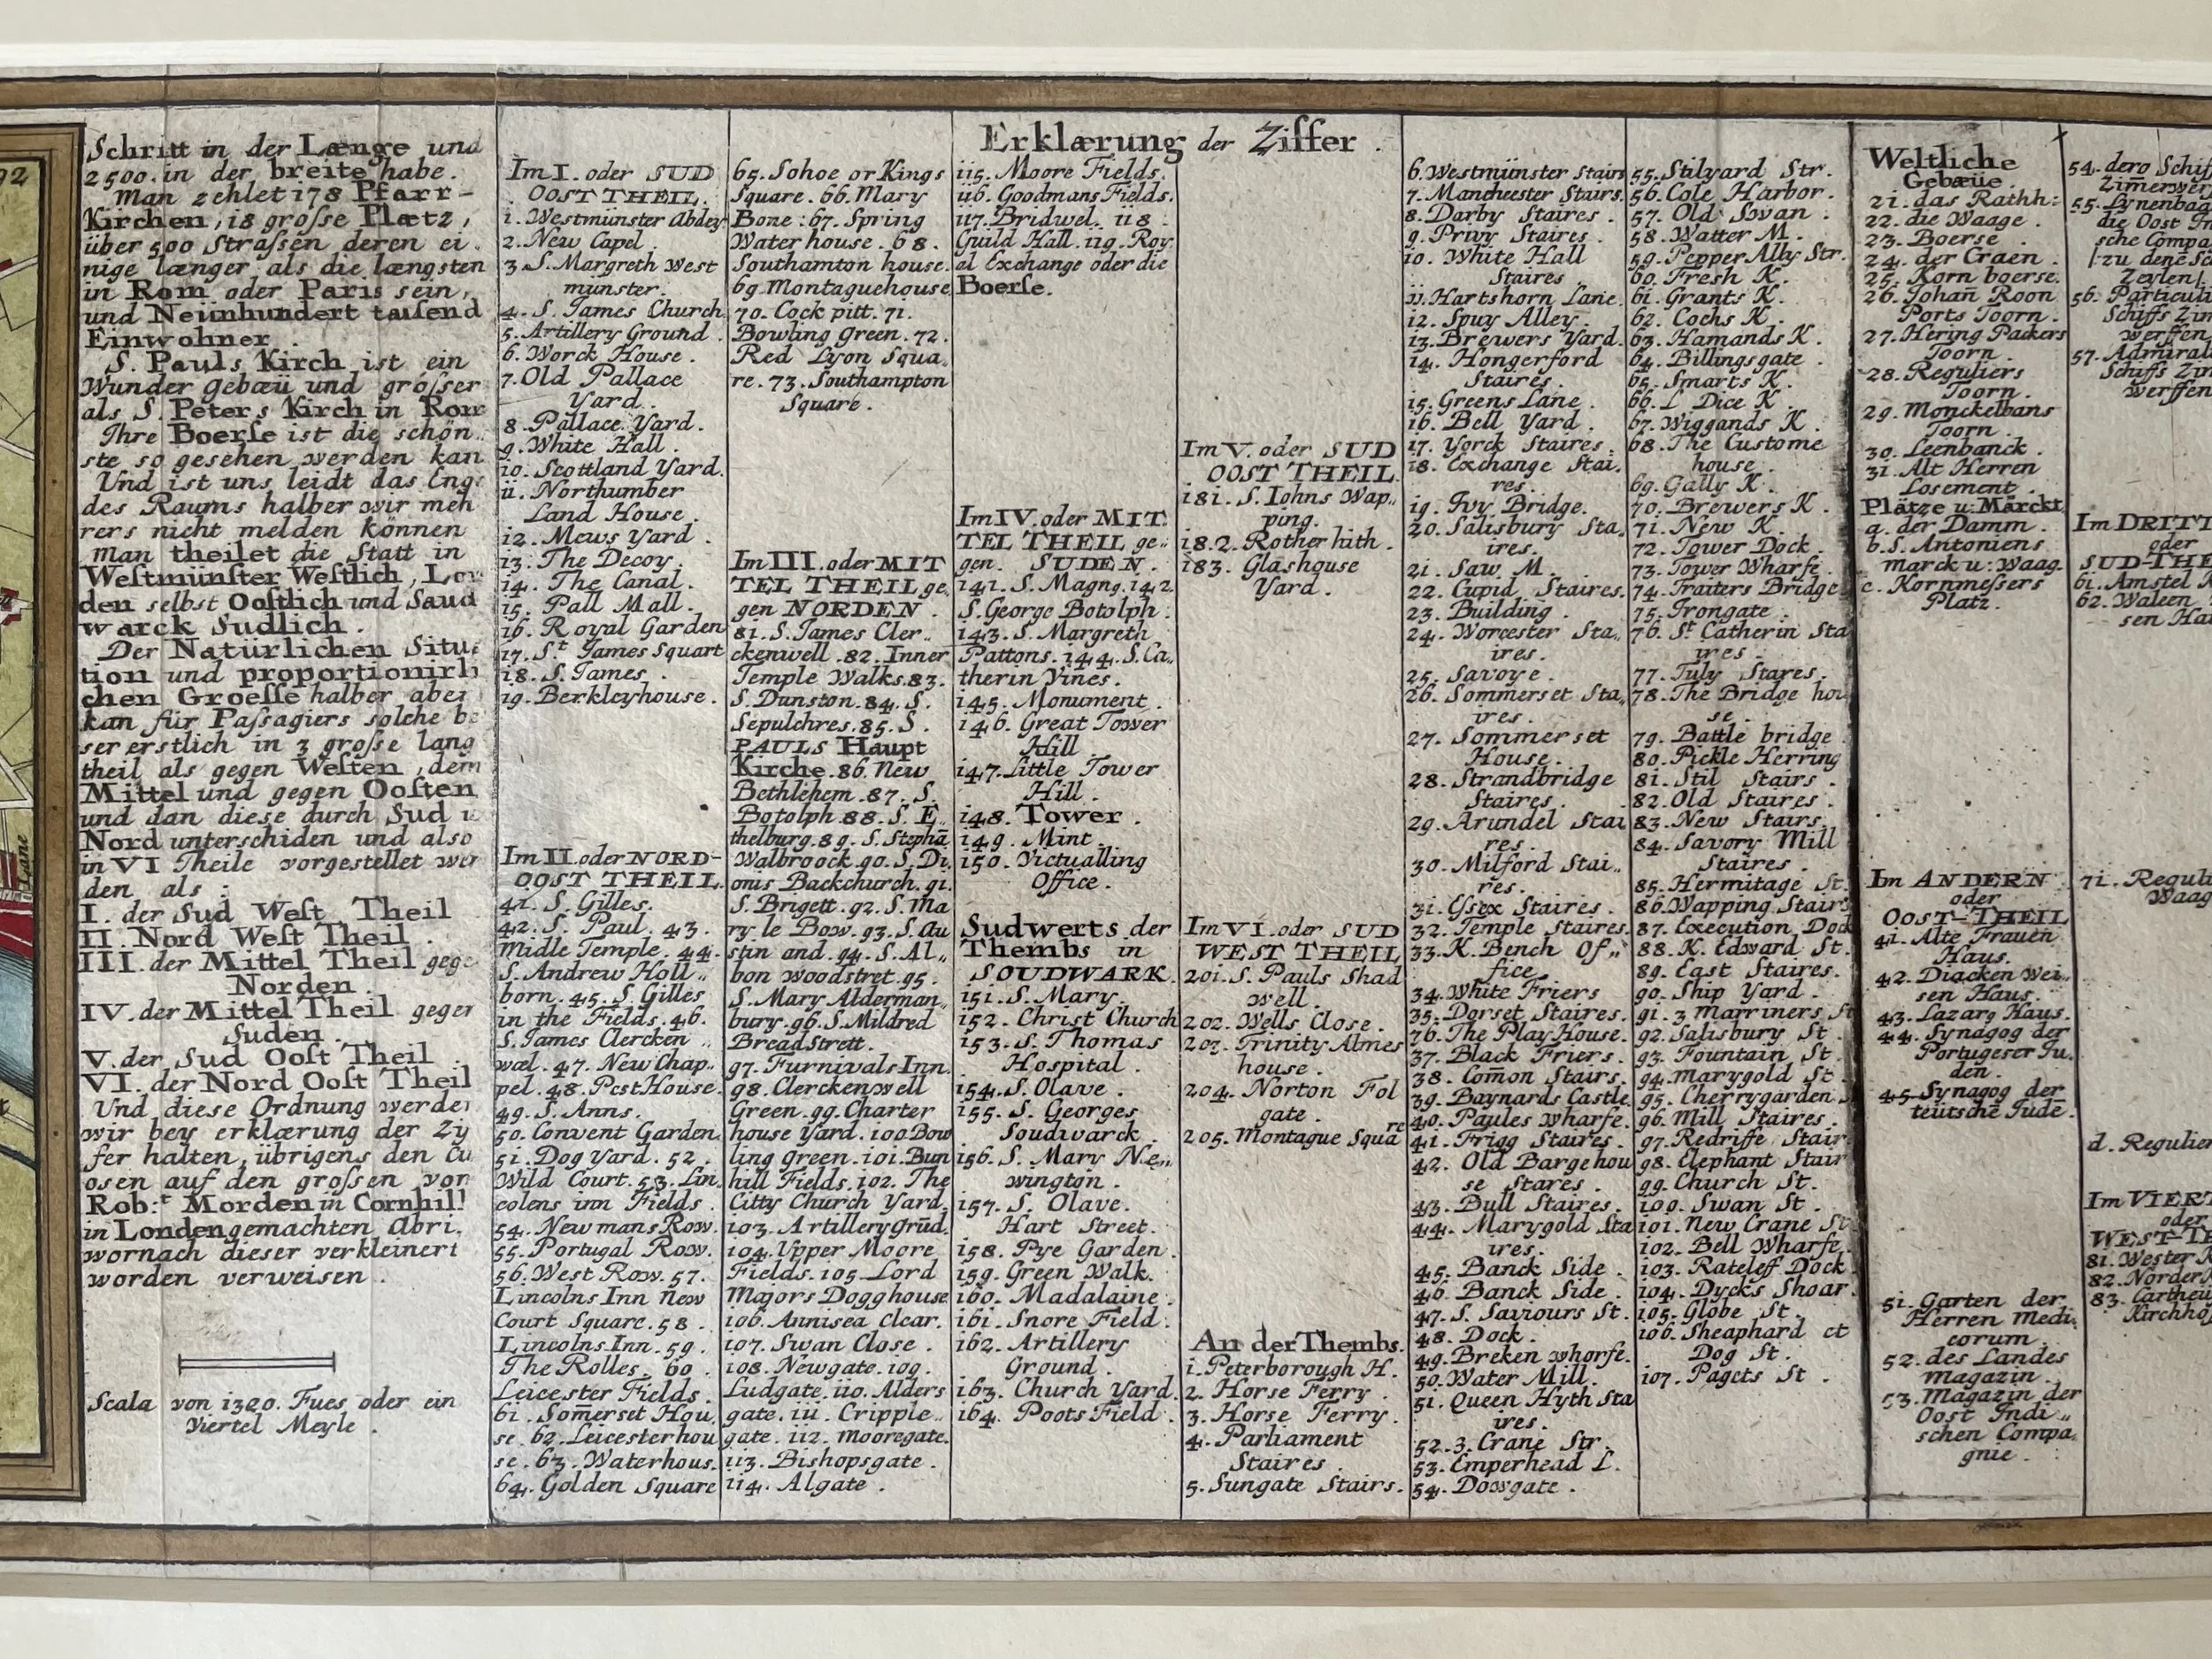 92
Schritt in der Længe und
2500. in der breite habe.
Man zehlet 178 Pfarr-
Kirchen, 18 große Plætz,
über 500 Straßen deren ei
nige længer als die længsten
in Rom oder Paris sein,
und Neünhundert taüsend
Einwohner.
S. Pauls Kirch ist ein
Wunder Gebæü und größer
als S. Peters Kirch in Rom
Ihre Boerse ist die schön
ste so gesehen werden kan
Und ist uns leidt das Enge
des Raums halber wir meh
rers nicht melden können
man theilet die Statt in
Westmünster Westlich, Lon
den selbst Oostlich und Saud
warck Sudlich.
Der Natürlichen Situa
tion und proportionirli
chen Groesse halber aber
kan für Passagiers solche be
ser erstlich in 3 große lang
theil als gegen Westen, dem
Mittel und gegen Oosten
und dan diese durch Sud u
Nord unterschiden und also
in VI Theile vorgestellet wer
den als:
I. der Sud West Theil
II. Nord West Theil.
III. der Mittel Theil gege
Norden.
IV. der Mittel Theil gegen
Suden.
V. der Sud Oost Theil.
VI. der Nord Oost Theil
Und diese Ordnung werden
wir bey erklærung der Zy
fer halten, übrigens den Cu
osen auf den großen von
Rob:t Morden in Cornhill
in Londen gemachten Abri.
wornach dieser verkleinert
worden verweisen.
Scala von 1320. Fues oder ein
Viertel Meyle.
Lane
Erklærung der Ziffer.
Im I. oder SUD
OOST THEIL.
1. Westmünster Abdey
2. New Capel.
3. S. Margreth West
münster.
4. S. James Church.
5. Artillery Ground.
6. Worck House.
7. Old Pallace
Yard.
8. Pallace Yard.
9. White Hall.
10. Scottland Yard.
11. Northumber
Land House.
12. Mews Yard.
13. The Decoy.
14. The Canal.
15. Pall Mall.
16. Royal Garden
17. St James Squart
18. S. James.
19. Berkleyhouse.
Im II. oder NORD-
OOST THEIL.
41. S. Gilles.
42. S. Paul. 43.
Midle Temple. 44.
S. Andrew Holl„
born. 45. S. Gilles
in the Fields. 46.
S. James Clercken„
wæl. 47. New Chap„
pel. 48. Pest House.
49. S. Anns.
50. Convent Garden.
51. Dog Yard. 52.
Wild Court. 53. Lin,
colens inn Fields.
54. Newmans Row.
55. Portugal Row.
56. West Row. 57.
Lincolns Inn New
Court Square. 58.
Lincolns Inn. 59.
The Rolles. 60.
Leicester Fields.
61. Somerset Hou,
se. 62. Leicesterhou
se. 63. Waterhous.
64. Golden Square
65. Sohoe or Kings
Square. 66. Mary
Bone: 67. Spring
Water house. 68.
Southamton house.
69. Montaguehouse.
70. Cock pitt. 71.
Bowling Green. 72.
Red Lyon Squa,
re. 73. Southampton
Square.
Im III. oder MIT
TEL THEIL ge,
gen NORDEN.
81. S. James Cler„
ckenwell. 82. Inner
Temple Walks. 83.
S. Dunston. 84. S.
Sepulchres. 85. S.
PAULS Haupt
Kirche. 86. New
Bethlehem. 87. S.
Botolph 88. S. E
thelburg. 89. S. Stephā
Walbroock. 90. S. Di,
onis Backchurch. 91.
S. Brigett. 92. S. Ma
ry le Bow. 93. S. Au
stin and. 94. S. Al„
bon Woodstret. 95.
S. Mary Alderman„
bury. 96. S. Mildred
BreadStrett.
97. Furnivals Inn.
98. Clerckenwell
Green. 99. Charter
house Yard. 100. Bow
ling Green. 101. Bun
hill Fields. 102. The
Citty Church Yard.
103. Artillery Grūd.
104. Upper Moore
Fields. 105. Lord
Majors Dogghouse
106. Annisea Clear.
107. Swan Close.
108. Newgate. 109.
Ludgate. 110. Alders
gate. 111. Cripple„
gate. 112. Mooregate.
113. Bishopsgate.
114. Algate.
115. Moore Fields.
116. Goodmans Fields.
117. Bridwel. 118.
Guild Hall. 119. Roy.
al Exchange oder die
Boerse.
Im IV. oder MIT
TEL THEIL ge„
gen. SUDEN.
141. S. Magng. 142.
S. George Botolph.
143. S. Margreth
Pattons. 144. S. Ca„
therin Vines.
145. Monument.
146. Great Tower
Hill.
147. Little Tower
Hill.
148. Tower.
149. Mint.
150. Victualling
Office.
Sudwerts der
Thembs in
SOUDWARK.
151. S. Mary.
152. Christ Church
153. S. Thomas
Hospital.
154. S. Olave.
155. S. Georges
Soudwarck.
156. S. Mary Ne„
wington.
157. S. Olave.
Hart Street.
158. Pye Garden.
159. Green Walk.
160. Madalaine.
161. Snore Field.
162. Artillery
Ground.
163. Church Yard.
164. Poots Field.
Im V. oder SUD
OOST THEIL.
181. S. Iohns Wap„
ping.
182. Rotherhith.
183. Glashouse
Yard.
Im VI. oder SUD
WEST THEIL
201. S. Pauls Shad
well.
202. Wells Close.
203. Trinity Almes
house.
204. Norton Fol
gate.
205. Montague Squa re
An der Thembs.
1. Peterborough H.
2. Horse Ferry.
3. Horse Ferry.
4. Parliament
Staires.
5. Sungate Stairs.
6. Westmünster Stairs
7. Mancheester Stairs.
8. Darby Staires.
9. Privy Staires.
10. White Hall
Staires
11. Hartshorn Lane.
12. Spuy Alley.
13. Brewers Yard.
14. Hongerford
Staires.
15. Greens Lane.
16. Bell Yard.
17. Yorck Staires.
18. Exchange Stai.
res.
19. Ivy Bridge.
20. Salisbury Sta„
ires.
21. Saw. M.
22. Cupid Staires.
23. Building.
24. Worcester Sta„
ires.
25. Savoye.
26. Sommerset Sta„
ires.
27. Sommerset
House.
28. Strandbridge
Staires.
29. Arundel Stai
res.
30. Milford Stai„
res.
31. Esex Staires.
32. Temple Staires.
33. K. Bench Of„
fice
34. White Friers
35. Dorset Staires.
76. The Play House.
37. Black Friers.
38. Com̄on Stairs.
39. Baynards Castle.
40. Paules Wharfe.
41. Frigg Staires.
42. Old Bargehou
se Stares.
43. Bull Staires.
44. Marygold Sta
ires.
45. Banck Side.
46. Banck Side.
47. S. Saviours St.
48. Dock.
49. Breken whorfe.
50. Water Mill.
51. Queen Hyth Sta
ires.
52. 3. Crane Str.
53. Emperhead L.
54. Dowgate.
55. Stilyard Str.
56. Cole Harbor.
57. Old Swan.
58. Watter M.
59. Pepper Ally Str.
60. Fresh K.
61. Grants K.
62. Cochs K.
63. Hamands K.
64. Billingsgate.
65. Smarts K.
66. L Dice K.
67. Wiggands K.
68. The Custome
house.
69. Gally K.
70. Brewers K.
71. New K.
72. Tower Dock.
73. Tower Wharfe.
74. Traiters Bridge
75. Irongate.
76. St Catherin Sta
ires.
77. Tuly Stares.
78. The Bridge hou
se.
79. Battle bridge
80. Pickle Herring
81. Stil Stairs.
82. Old Staires.
83. New Stairs.
84. Savory Mill
Staires.
85. Hermitage St.
86. Wapping Stairs
87. Execution Dock
88. K. Edward St.
89. East Staires.
90. Ship Yard.
91. 3 Marriners St
92. Salisbury St.
93. Fountain St.
94. Marygold St.
95. Cherrygarden
96. Mill Staires.
97. Redriffe Stair
98. Elephant Stair
99. Church St.
100. Swan St.
101. New Crane St
102. Bell Wharfe
103. Rateleff Dock
104. Dycks Shoar.
105. Globe St.
106. Sheaphard et
Dog St.
107. Pagets St.
Weltliche
Gebæüe.
21. das Rathh:
22. die Waage.
23. Boerse.
24. der Craen.
25. Korn boerse.
26. Johañ Roon
Ports Toorn.
27. Hering Packers
Toorn.
28. Reguliers
Toorn.
29. Monckelbans
Toorn.
30. Leenbanck.
31. Alt Herren
Losement.
Plätze u: Märckt
a. der Damm.
b. S. Antoniens
marck u: Waag.
c. Kornmeßers
Platz.
Im ANDERN
oder
OOST-THEIL
41. Alte Frauen
Haus.
42. Diacken Wei„
sen Haus.
43. Lazarg Haus.
44. Synagog der
Portugeser Ju.
den.
45. Synagog der
teütschē Judē.
51. Garten der
Herren Medi,
corum.
52. des Landes
Magazin.
53. Magazin der
Oost Indi„
schen Compa,
gnie.
54. dero Schif
Zimerwer
55. Lynenbaa
die Oost In
sche Compa
zu denē Sc
Zeylen
56. Particuli
Schiffs Zim
werffen
57. Admiral
Schiffs Zim
werffen
Im DRITT
oder
SUD-THE
61. Amstel K
62. Waleen
sen Hau
71. Reguli
Waag
d. Regulier
Im VIERT
oder
WEST-TE
81. Wester K
82. Norder K
83. Cartheu
Kirchho